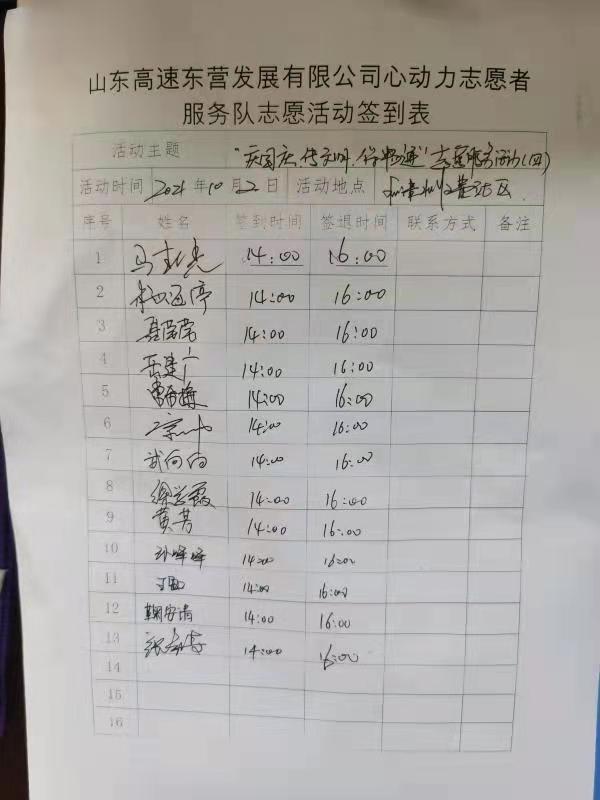 山东高速东营发展有限公司心动力志愿者
服务队志愿活动签到表
活动主题 "庆国庆 保畅通"志愿服务活动(四)
活动时间 2021年10月2日 活动地点
序号 姓名 签到时间 签退时间 联系方式 备注
1 马 14:00 16:00
2 14:00 16:00
3 聂荣荣 14:00 16:00
4 岳建广 14:00 16:00
5 14:00 16:00
6 14:00 16:00
7 武向向 14:00 16:00
8 徐学霞 14:00 16:00
9 黄芳 14:00 16:00
10 孙峰峰 14:00 16:00
11 14:00 16:00
12 鞠安清 14:00 16:00
13 张 14:00 16:00
14
15
16